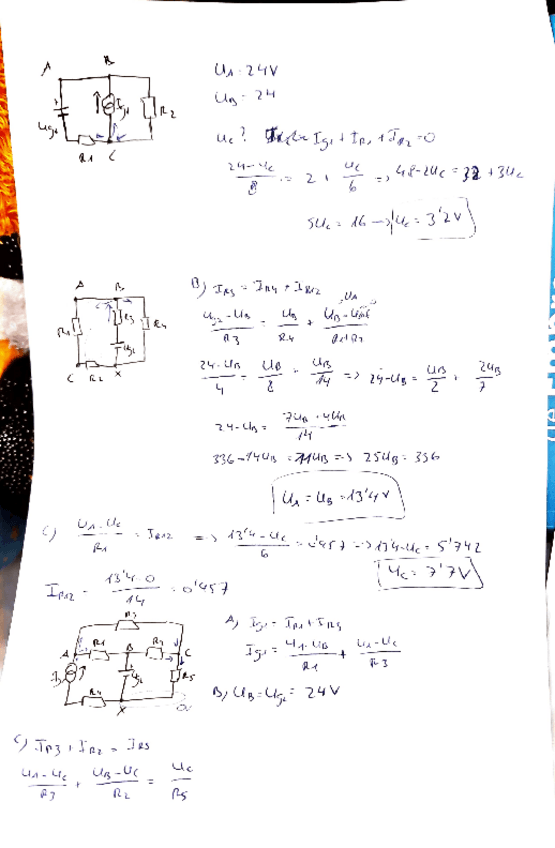 A B
Ug1 Ig1 R2
R1 C
UA = 24V
UB = 24
Uc? Ig1 + IR1 + IR2 = 0
24-Uc / 8 = 2 + Uc / 6 => 48 - 2Uc = 32 + 3Uc
5Uc = 16 → Uc = 3'2V
A B
R1 R3 R4
Ug2
C R2 X
B) IR3 = IR4 + IR12
Ug2-UB / R3 = UB / R4 +
24-UB / 4 = UB / 8 + UB / 14 => 24-UB = UB / 2 + 2UB / 7
24-UB = 7UB + 4UB / 14
336-14UB = 11UB => 25UB = 336
UA = UB = 13'4V
C) UA-Uc / R1 = IR12 => 13'4-Uc / 6 = 0'457 → 13'4-Uc = 5'742
Uc = 7'7V
IR12 = 13'4-0 / 14 = 0'457
R3
A R1 B R2 C
Ug2 R5
R4 X
A) Ig1 = IR1 + IR3
Ig1 = UA-UB / R1 + UA-Uc / R3
B) UB = Ug2 = 24V
C) IR3 + IR2 = IR5
UA-Uc / R3 + UB-Uc / R2 = Uc / R5